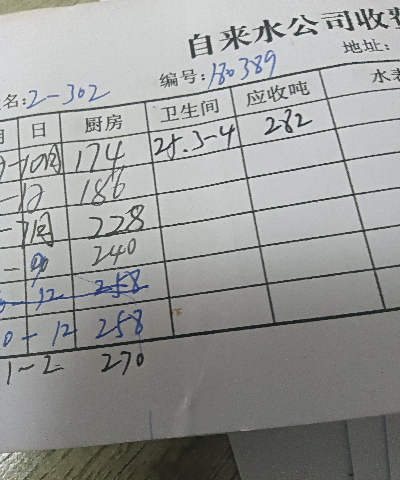 自来水公司收费
名:2-302 编号:180389 地址:
月 日 厨房 卫生间 应收吨 水表
10月 174 25.3-4 282
-12 186
-1月 228
- 240
- 12 258
0-12 258
1-2 270